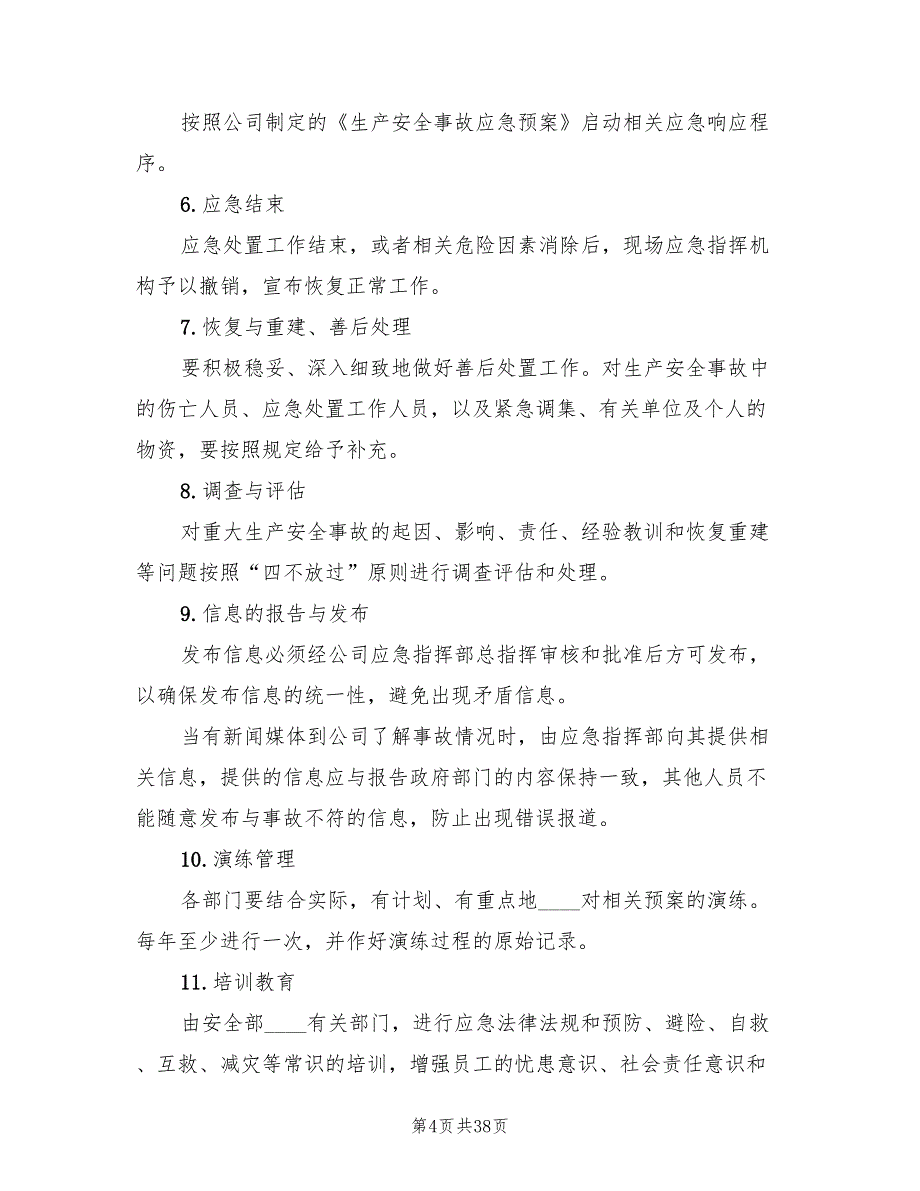 按照公司制定的《生产安全事故应急预案》启动相关应急响应程
序。
6.应急结束
应急处置工作结束，或者相关危险因素消除后，现场应急指挥机
构予以撤销，宣布恢复正常工作。
7.恢复与重建、善后处理
要积极稳妥、深入细致地做好善后处置工作。对生产安全事故中
的伤亡人员、应急处置工作人员，以及紧急调集、有关单位及个人的
物资，要按照规定给予补充。
8.调查与评估
对重大生产安全事故的起因、影响、责任、经验教训和恢复重建
等问题按照“四不放过”原则进行调查评估和处理。
9.信息的报告与发布
发布信息必须经公司应急指挥部总指挥审核和批准后方可发布，
以确保发布信息的统一性，避免出现矛盾信息。
当有新闻媒体到公司了解事故情况时，由应急指挥部向其提供相
关信息，提供的信息应与报告政府部门的内容保持一致，其他人员不
能随意发布与事故不符的信息，防止出现错误报道。
10.演练管理
各部门要结合实际，有计划、有重点地____对相关预案的演练。
每年至少进行一次，并作好演练过程的原始记录。
11.培训教育
由安全部____有关部门，进行应急法律法规和预防、避险、自救
、互救、减灾等常识的培训，增强员工的忧患意识、社会责任意识和
第4页共38页